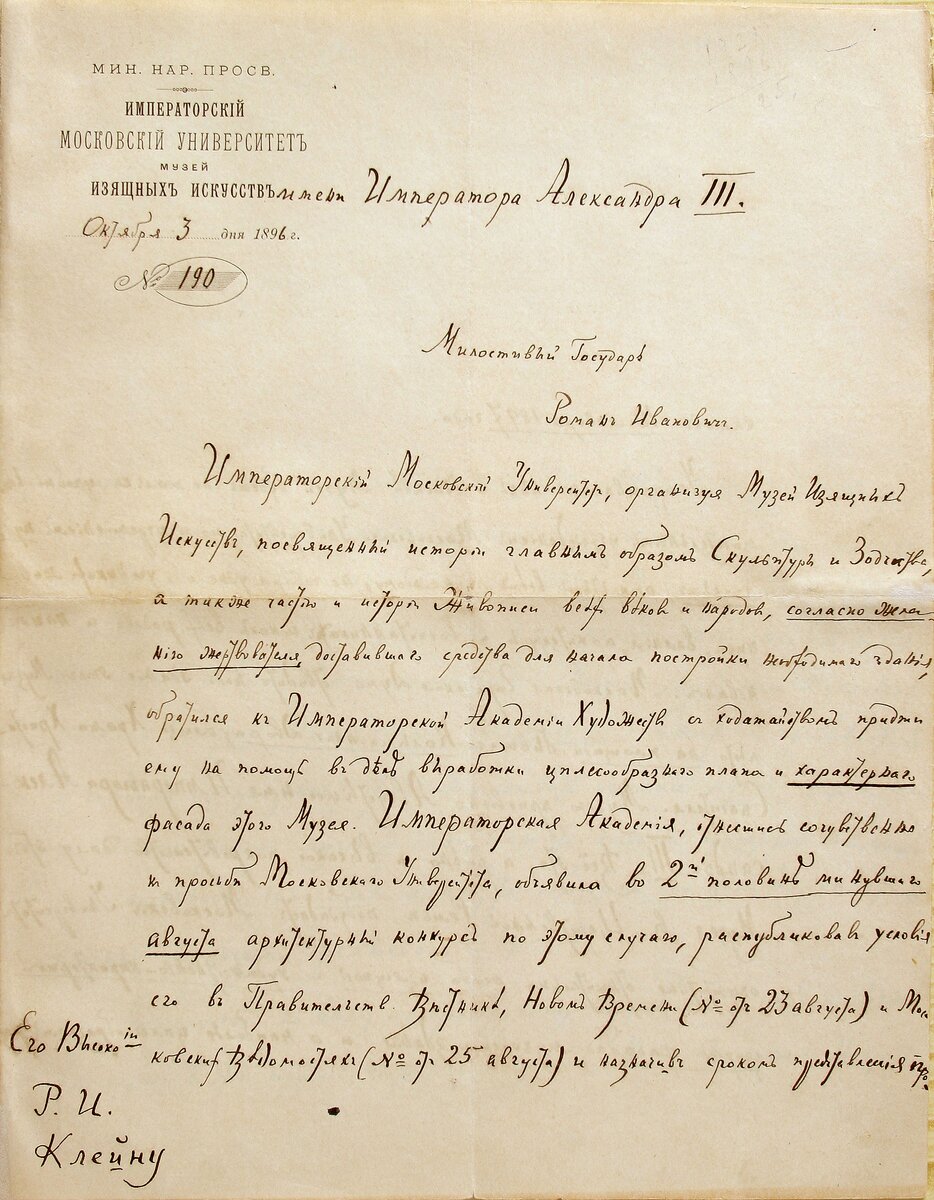 МИН. НАР. ПРОСВ.
ИМПЕРАТОРСКІЙ
МОСКОВСКІЙ УНИВЕРСИТЕТЪ
МУЗЕЙ
ИЗЯЩНЫХЪ ИСКУССТВЪ имени Императора Александра III.
Октября 3 дня 1896 г.
№ 190
Милостивый Государь
Романъ Ивановичъ.
Императорскій Московскій Университетъ, организуя Музей Изящныхъ
Искусствъ, посвященный исторіи главнымъ образомъ Скульптуры и Зодчества,
а также частью и исторіи Живописи всѣхъ вѣковъ и народовъ, согласно жела-
нію жертвователя, доставившаго средства для начала постройки необходимаго зданія,
обратился къ Императорской Академіи Художествъ съ ходатайствомъ придти
ему на помощь въ дѣлѣ выработки цѣлесообразнаго плана и характернаго
фасада этого Музея. Императорская Академія, отнесшись сочувственно
къ просьбѣ Московскаго Университета, объявила во 2й половинѣ минувшаго
августа архитектурный конкурсъ по этому случаю, распубликовавъ условія
его въ Правительств. Вѣстникѣ, Новомъ Времени (№ отъ 23 августа) и Мос-
ковскихъ Вѣдомостяхъ (№ отъ 25 августа) и назначивъ срокомъ представленія
Его Высокоію
Р. И.
Клейну